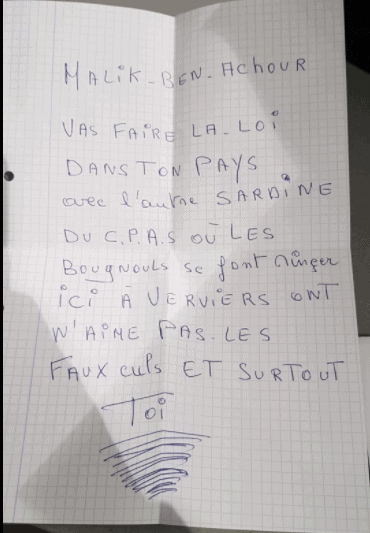 MALiK-BEN-ACHOUR
VAS FAiRE LA-LOi
DANS TON PAYS
avec l'autre SARDiNE
DU C.P.A.S OÙ LES
BOUGNOULS se font
iCi À VERViERS ONT
N'AiME PAS. LES
FAUX CULS ET SURTOUT
TOi